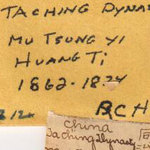 TACHING DYNAS
MU TSUNG YI
HUANG TI
1862-1874
BCH
China
Ta Ching Dynasty